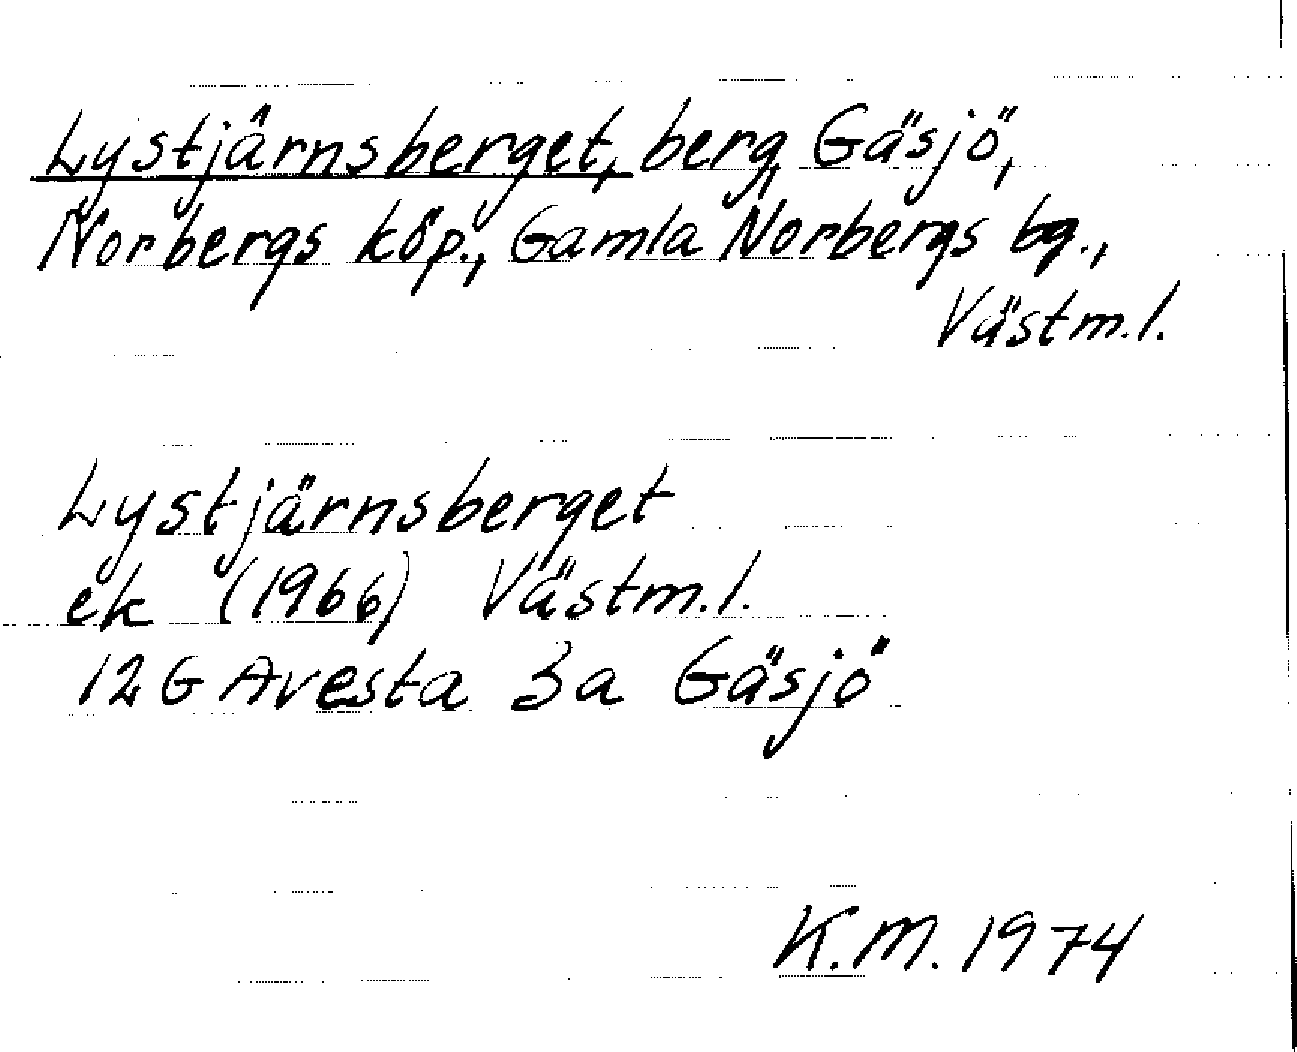 Lystjärnsberget, berg, Gäsjö,
Norbergs köp., Gamla Norbergs bg.,
Västm.l.
Lystjärnsberget
ek (1966) Västm.l.
12G Avesta 3a Gäsjö
K.M. 1974